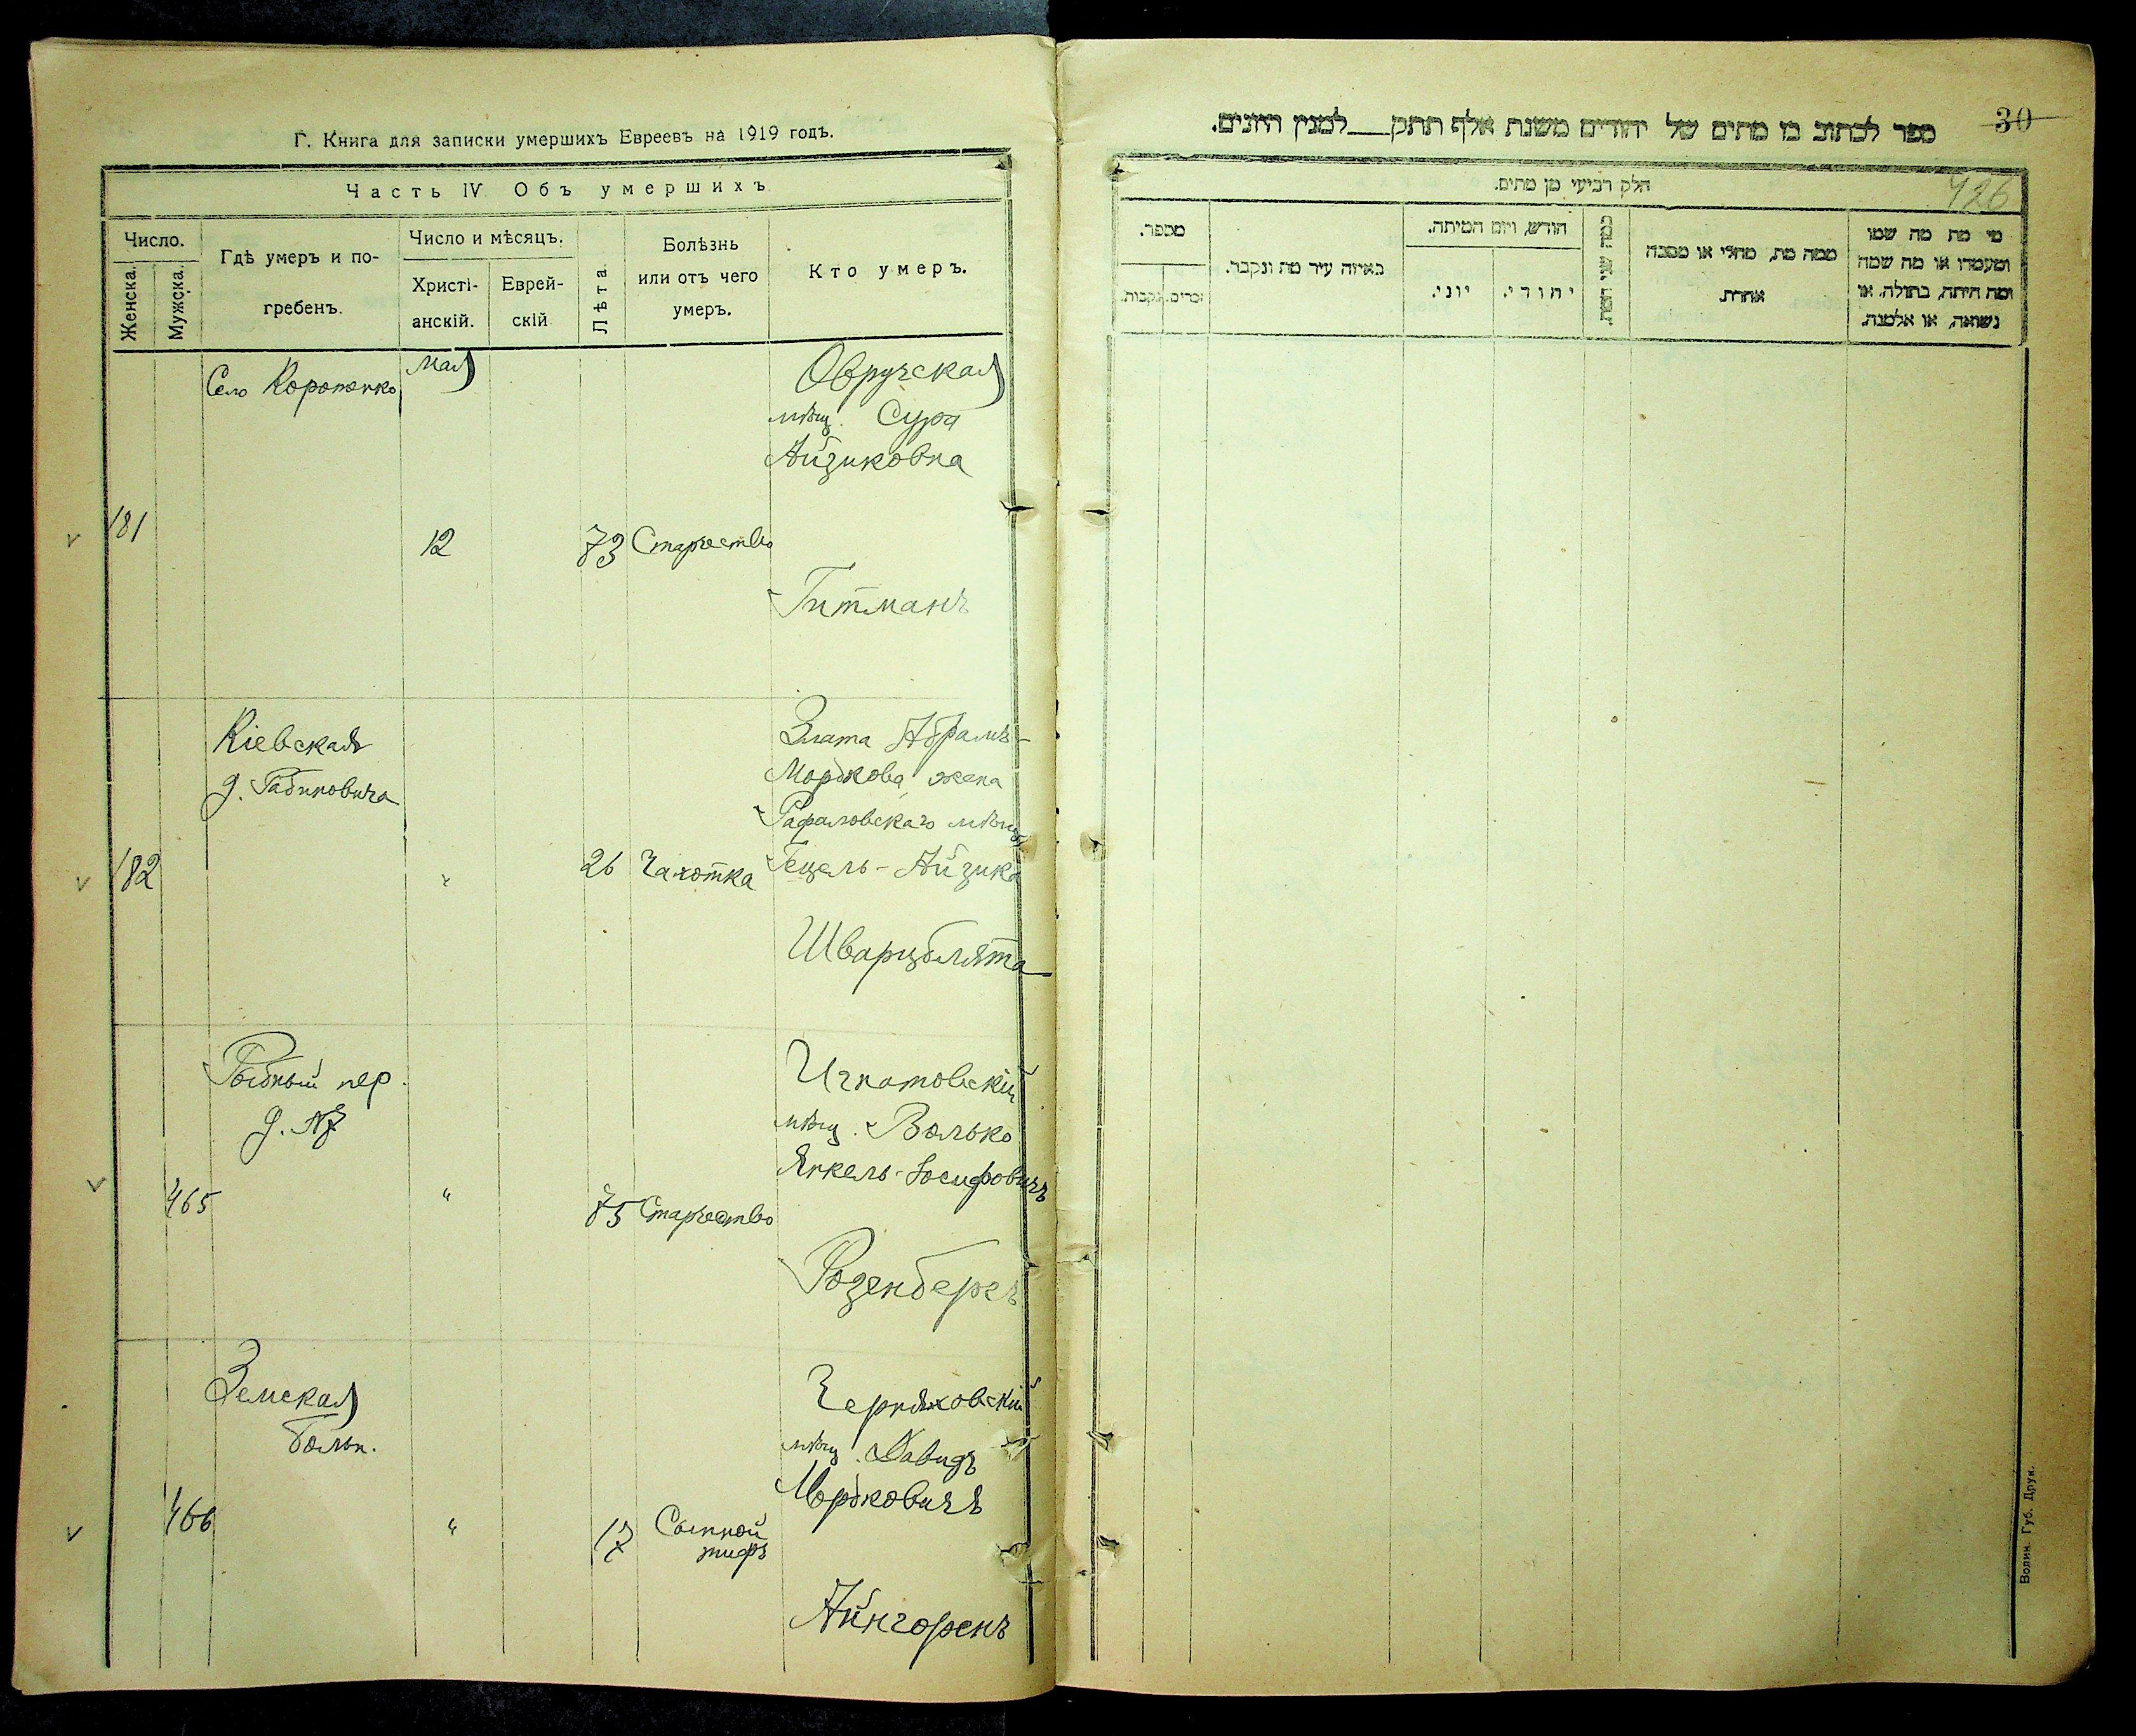 Г. Книга для записки умершихъ Евреевъ на 1919 годъ.
Часть IV Объ умершихъ
Число.
Женска.
Мужска.
Гдѣ умеръ и по-
гребенъ.
Число и мѣсяцъ.
Христі-
анскій.
Еврей-
скій
Лѣта
Болѣзнь
или отъ чего
умеръ.
Кто умеръ.
181
Село
Мая
12
73
Старчество
Овручская
мѣщ. Сура
Айзиковна
Гитманъ
182
Кіевская
д. Рабиновича
"
26
Чахотка
Злата Абрамъ-
Мордкова, жена
Рафаловскаго мѣщ.
Гецель-Айзика
Шварцблята
465
Рыбный пер.
д. №7
"
75
Старчество
Игнатовскій
мѣщ. Волько
Янкель-Іосифовичъ
Розенбергъ
466
Земская
больн.
"
17
Сыпной
тифъ
Черняховскій
мѣщ. Давидъ
Мордковичъ
Айнгоренъ
30
ספר לכתוב בו מתים של יהודים משנת אלף תתק___למנין היונים.
426
חלק רביעי מן מתים.
מספר.
זכרים.
נקבות.
באיזה עיר מת ונקבר.
חודש, ויום המיתה.
יוני.
יהודי.
כמה שני המת.
ממה מת, מחלי או מסבה
אחרת.
מי מת מה שמו
ומעמדו או מה שמה
ומה היתה, בתולה, או
נשואה, או אלמנה.
Волин. Губ. Друк.